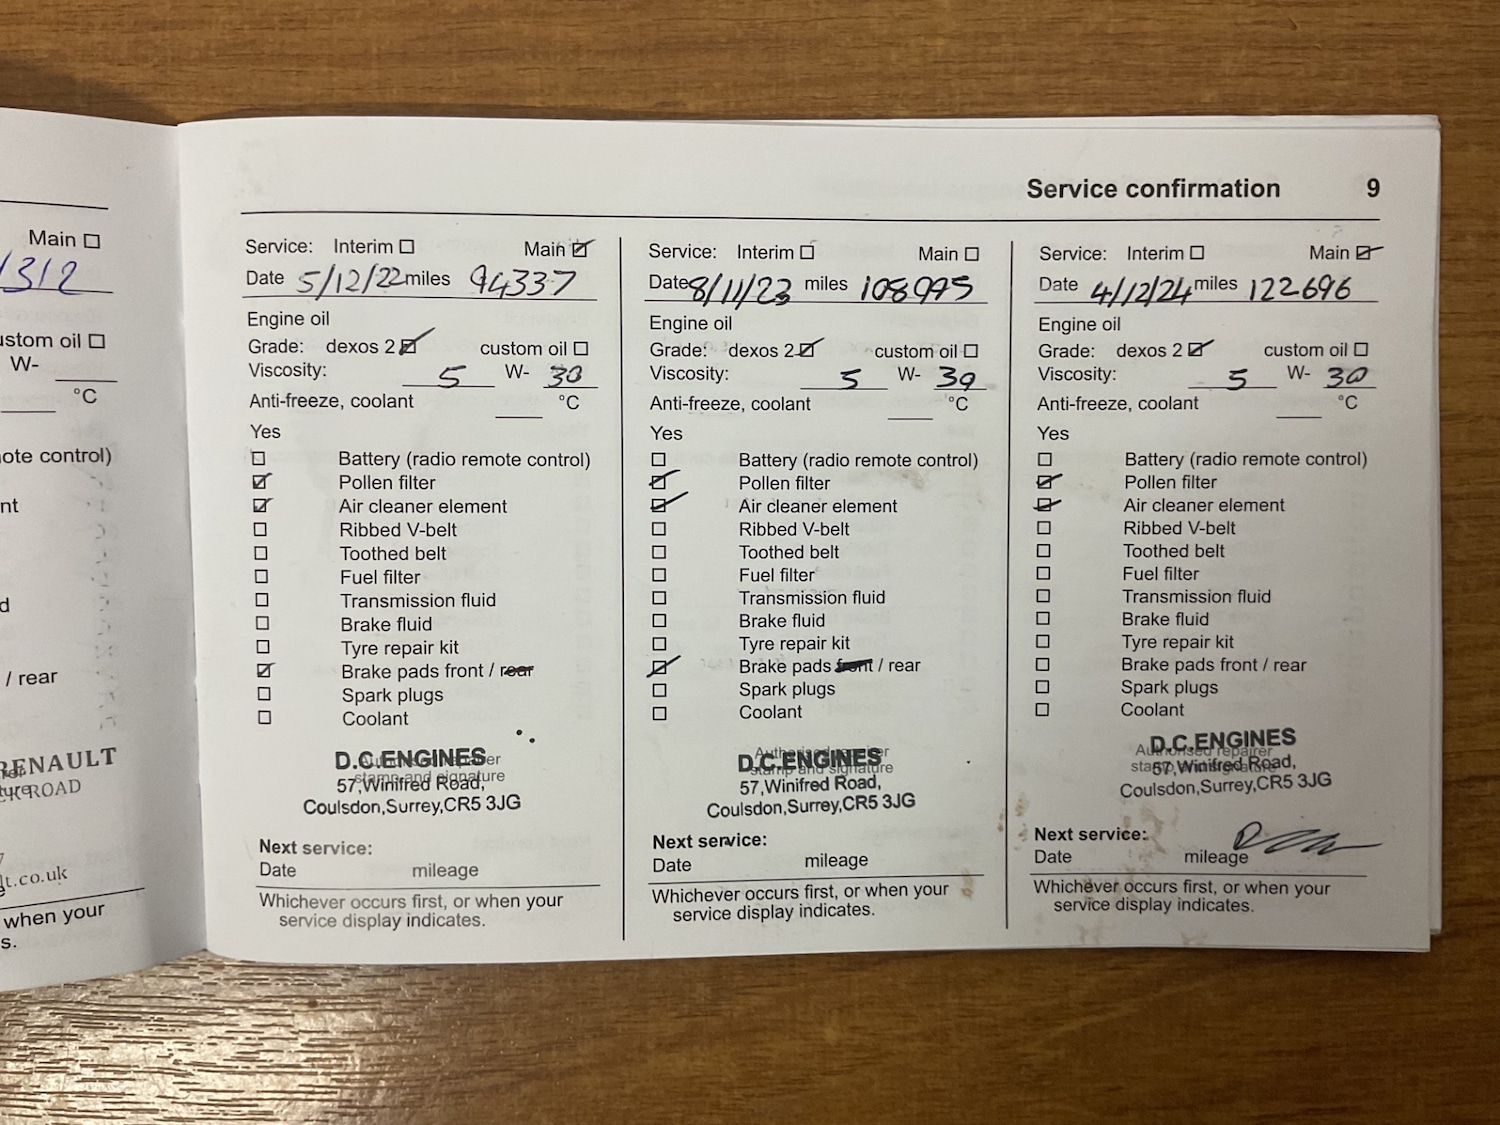 Main
1312
ustom oil
W-
°C
ote control)
nt
d
/ rear
RENAULT
ROAD
lt.co.uk
when your
s.
Service confirmation 9
Service: Interim Main
Date 5/12/22 miles 94337
Engine oil
Grade: dexos 2 custom oil
Viscosity: 5 W- 30
Anti-freeze, coolant °C
Yes
Battery (radio remote control)
Pollen filter
Air cleaner element
Ribbed V-belt
Toothed belt
Fuel filter
Transmission fluid
Brake fluid
Tyre repair kit
Brake pads front / rear
Spark plugs
Coolant
D.C.ENGINES
Authorised repairer
stamp and signature
57,Winifred Road,
Coulsdon,Surrey,CR5 3JG
Next service:
Date mileage
Whichever occurs first, or when your
service display indicates.
Service: Interim Main
Date 8/11/23 miles 108995
Engine oil
Grade: dexos 2 custom oil
Viscosity: 5 W- 30
Anti-freeze, coolant °C
Yes
Battery (radio remote control)
Pollen filter
Air cleaner element
Ribbed V-belt
Toothed belt
Fuel filter
Transmission fluid
Brake fluid
Tyre repair kit
Brake pads front / rear
Spark plugs
Coolant
Authorised repairer
D.C.ENGINES
stamp and signature
57,Winifred Road,
Coulsdon,Surrey,CR5 3JG
Next service:
Date mileage
Whichever occurs first, or when your
service display indicates.
Service: Interim Main
Date 4/12/24 miles 122696
Engine oil
Grade: dexos 2 custom oil
Viscosity: 5 W- 30
Anti-freeze, coolant °C
Yes
Battery (radio remote control)
Pollen filter
Air cleaner element
Ribbed V-belt
Toothed belt
Fuel filter
Transmission fluid
Brake fluid
Tyre repair kit
Brake pads front / rear
Spark plugs
Coolant
D.C.ENGINES
Authorised repairer
stamp and signature
57,Winifred Road,
Coulsdon,Surrey,CR5 3JG
Next service:
Date mileage
Whichever occurs first, or when your
service display indicates.